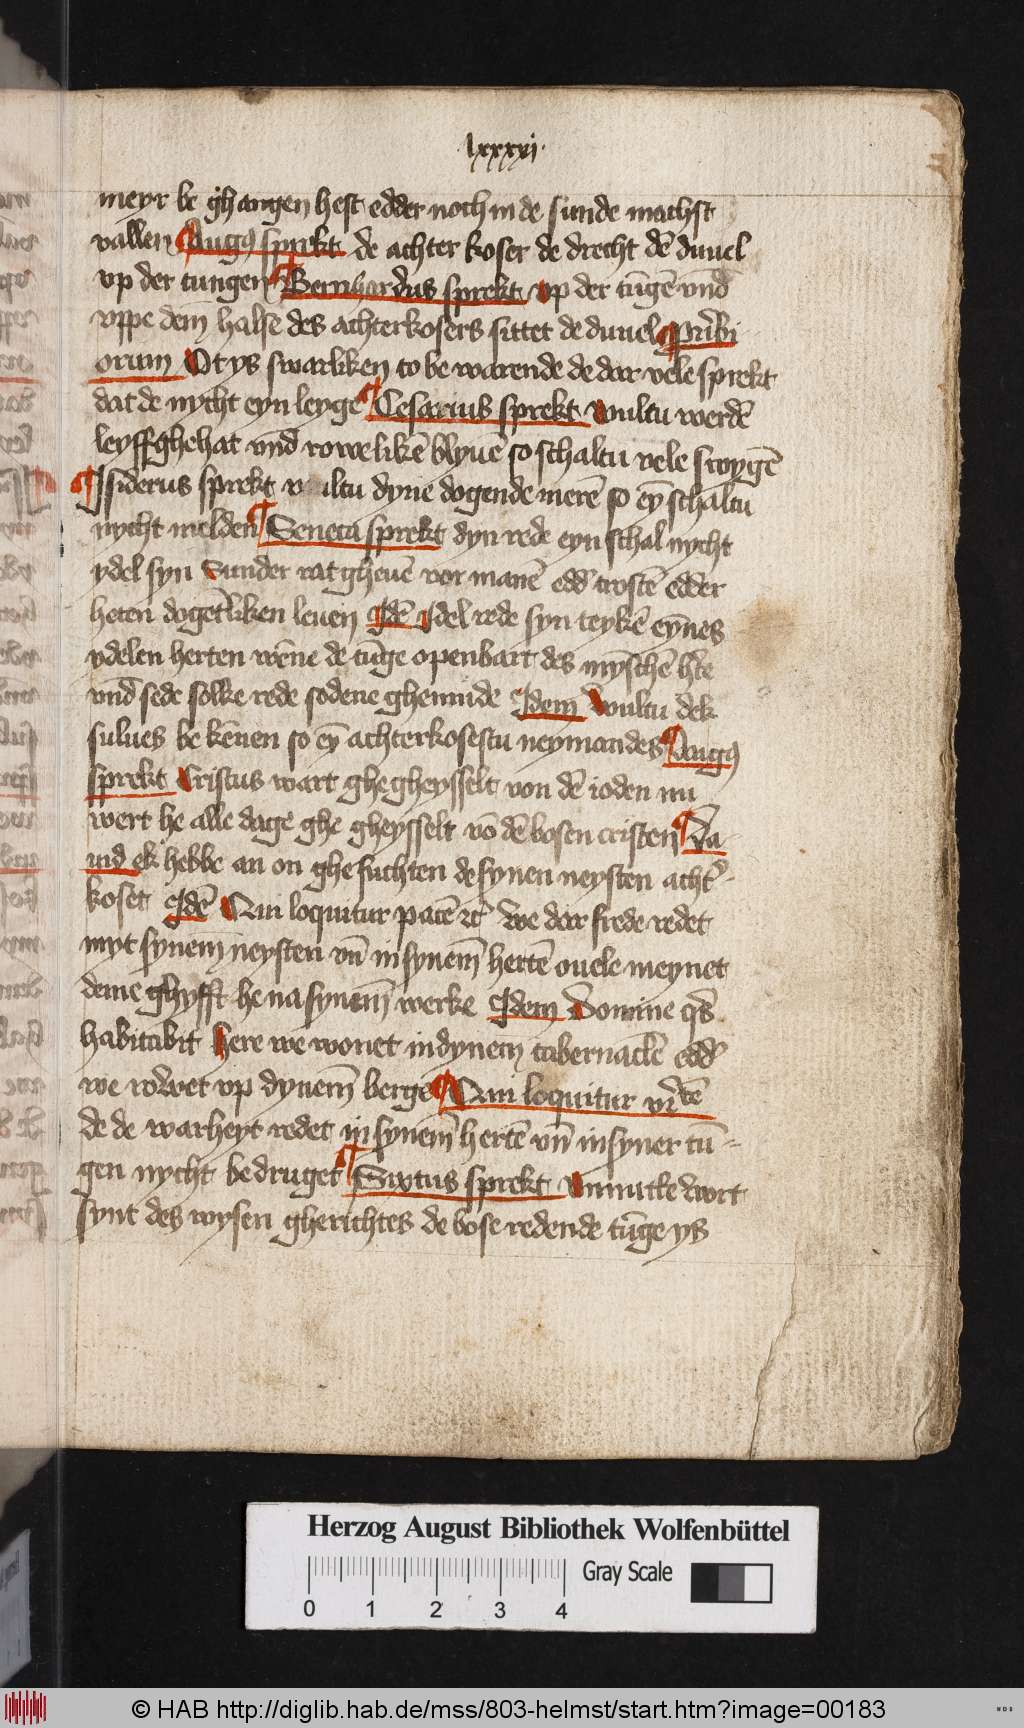 lxxxxi
meyr be ghangen hest edder noch in de sunde machst
vallen Augꝰ sprekt de achter koser de drecht dē duuel
vp der tungen Bernhardus sprekt vp der tūgē vnd
vppe dem halse des achterkosers sittet de duuel Pūbi
orum Ot ys swarliken to be warende de dar vele sprekt
dat de nycht eyn leyge Cesarius sprekt wultu werdē
leyffghehat vnd rowelikē blyuē so schaltu vele swygē
Isiderus sprekt w iltu dyne dogende merē so eȳ schaltu
nycht melden Seneca sprekt dyn rede eyn schal nycht
ydel syn Sunder rat gheuē vor manē edd trostē edder
heten dogetliken leuen Idē Idel rede syn teykē eȳnes
ydelen herten wēne de tūge openbart des mȳschē hte
vnd sede solke rede sodene ghemude Idem Wultu dek
sulues be kēnen so eȳ achterkosestu neymandes Augꝰ
sprekt Cristus wart ghe gheysselt von dē ioden nu
wert he alle dage ghe gheysselt vō dē bosen cristen Da
uid ek hebbe an on ghe suchten de synen neysten acht
koset Idē Qui loquitur pacē rc we dar frede redet
myt synem neysten vn in synem hertē ouele meynet
deme ghyfft he na synem werke Idem Domine qs
habitabit here we wonet in dynem tabernaclē edd
we rowet vp dynem berge Qui loquitur vitē
de de warheyt redet in synem hertē vn in syner tū
gen nycht bedruget Sixtus sprekt vnnutte wort
synt des wysen gherichtes de bose redende tūge ys
Herzog August Bibliothek Wolfenbüttel
Gray Scale
0 1 2 3 4
© HAB http://diglib.hab.de/mss/803-helmst/start.htm?image=00183